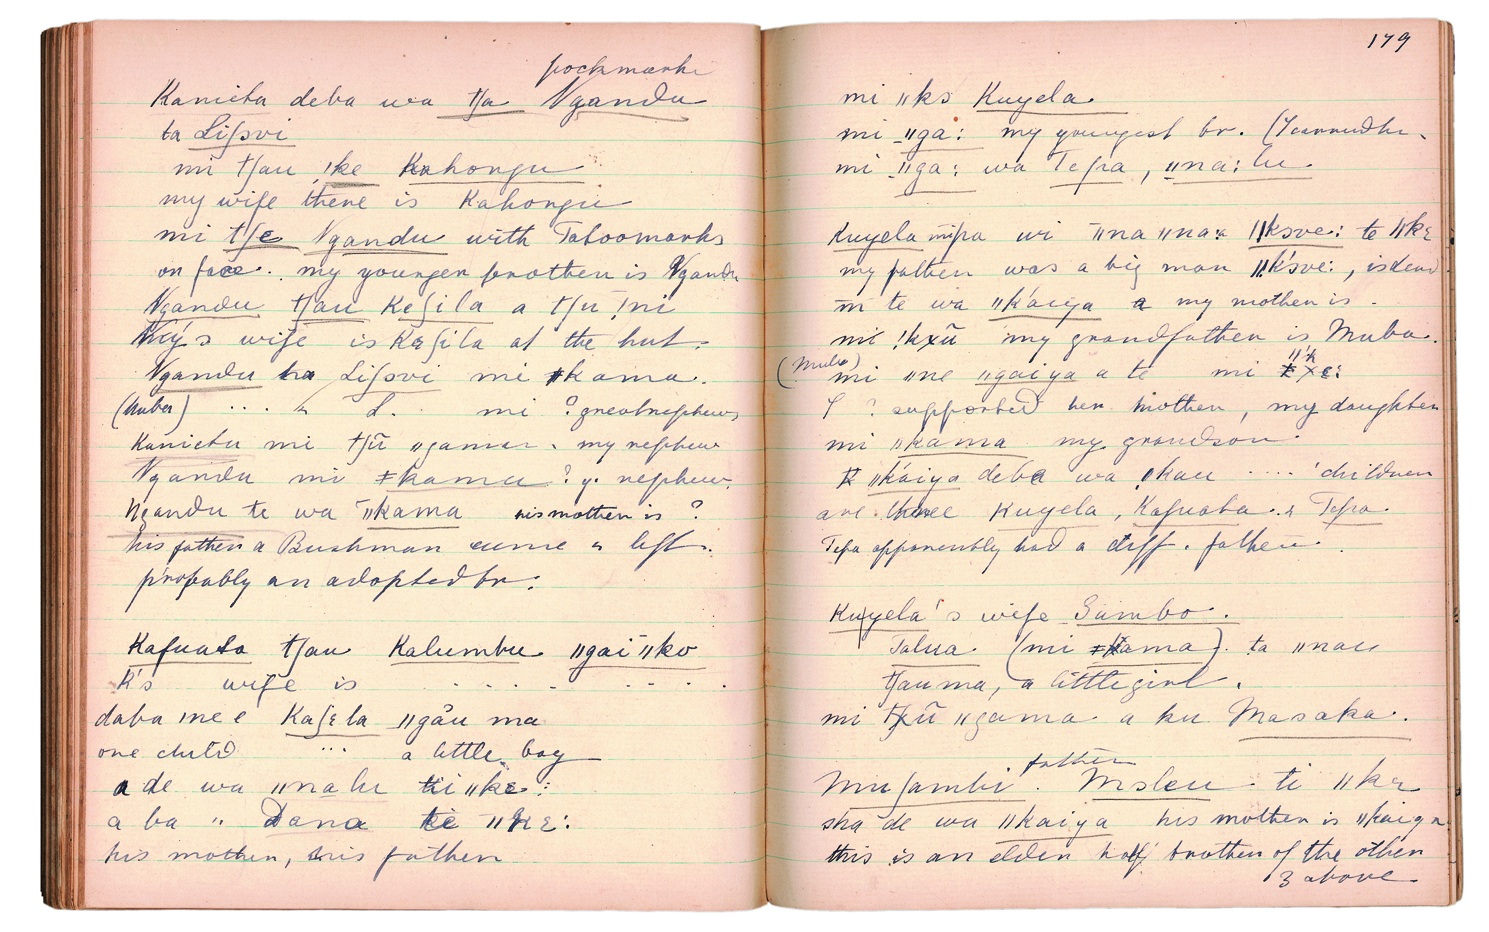 pockmarks
Kanieta deba wa tʃa Ngandu
ta Liʃovi
mi tʃau !ke Kahongu
my wife there is Kahongu
mi tʃe Ngandu with Tatoomarks
on face. my younger brother is Ngandu
Ngandu tʃau Keʃila a tʃu !ni
wife is Kɛʃila at the hut.
Ngandu ha Liʃovi mi ǂkama.
(huber) .... L. mi ? greatnephew
Kanietu mi tʃū ǁgamar. my nephew
Ngandu mi ǂkamu ? y. nephew.
Ngandu te wa ǁkama his mother is ?
his father a Bushman came & left.
probably an adopted br.
Kafuata tʃau Kalumbu ǁgai ǁko
K's wife is . . . . . . . .
daba ǀnee Kaʃɛla ǁgău ma
one child ... a little boy
a de wa ǁnahu ti ǁkɛ:
a ba " Dana te ǁkɛ:
his mother, his father
179
mi ǁks Kuyela.
mi ǁga: my youngest br.
mi ǁga: wa Tepa, ǁna:hu.
Kuyela mipa wi ǁna ǁna: ǁksve: te ǁkɛ
my father was a big man ǁk'sve:, is dead
m te wa ǁk'aiya a my mother is.
mi !kxū my grandfather is Muba.
(Muba) mi ǁne ǁgaiya a te mi
? supported her mother, my daughter
mi ǁkama my grandson.
ǁkaiya deba wa ǁkau .... children
are three Kuyela, Kafuata & Tepa.
Tepa apparently had a diff. father.
Kuyela's wife Sambo.
Talua (mi ǂkama). ta ǁnau
tʃauma, a little girl.
mi txū ǁgama a ku Masaka.
father
Muʃambi. Msleu ti ǁkɛ
sha de wa ǁkaiya his mother is ǁkaiya
this is an elder half brother of the other
3 above.